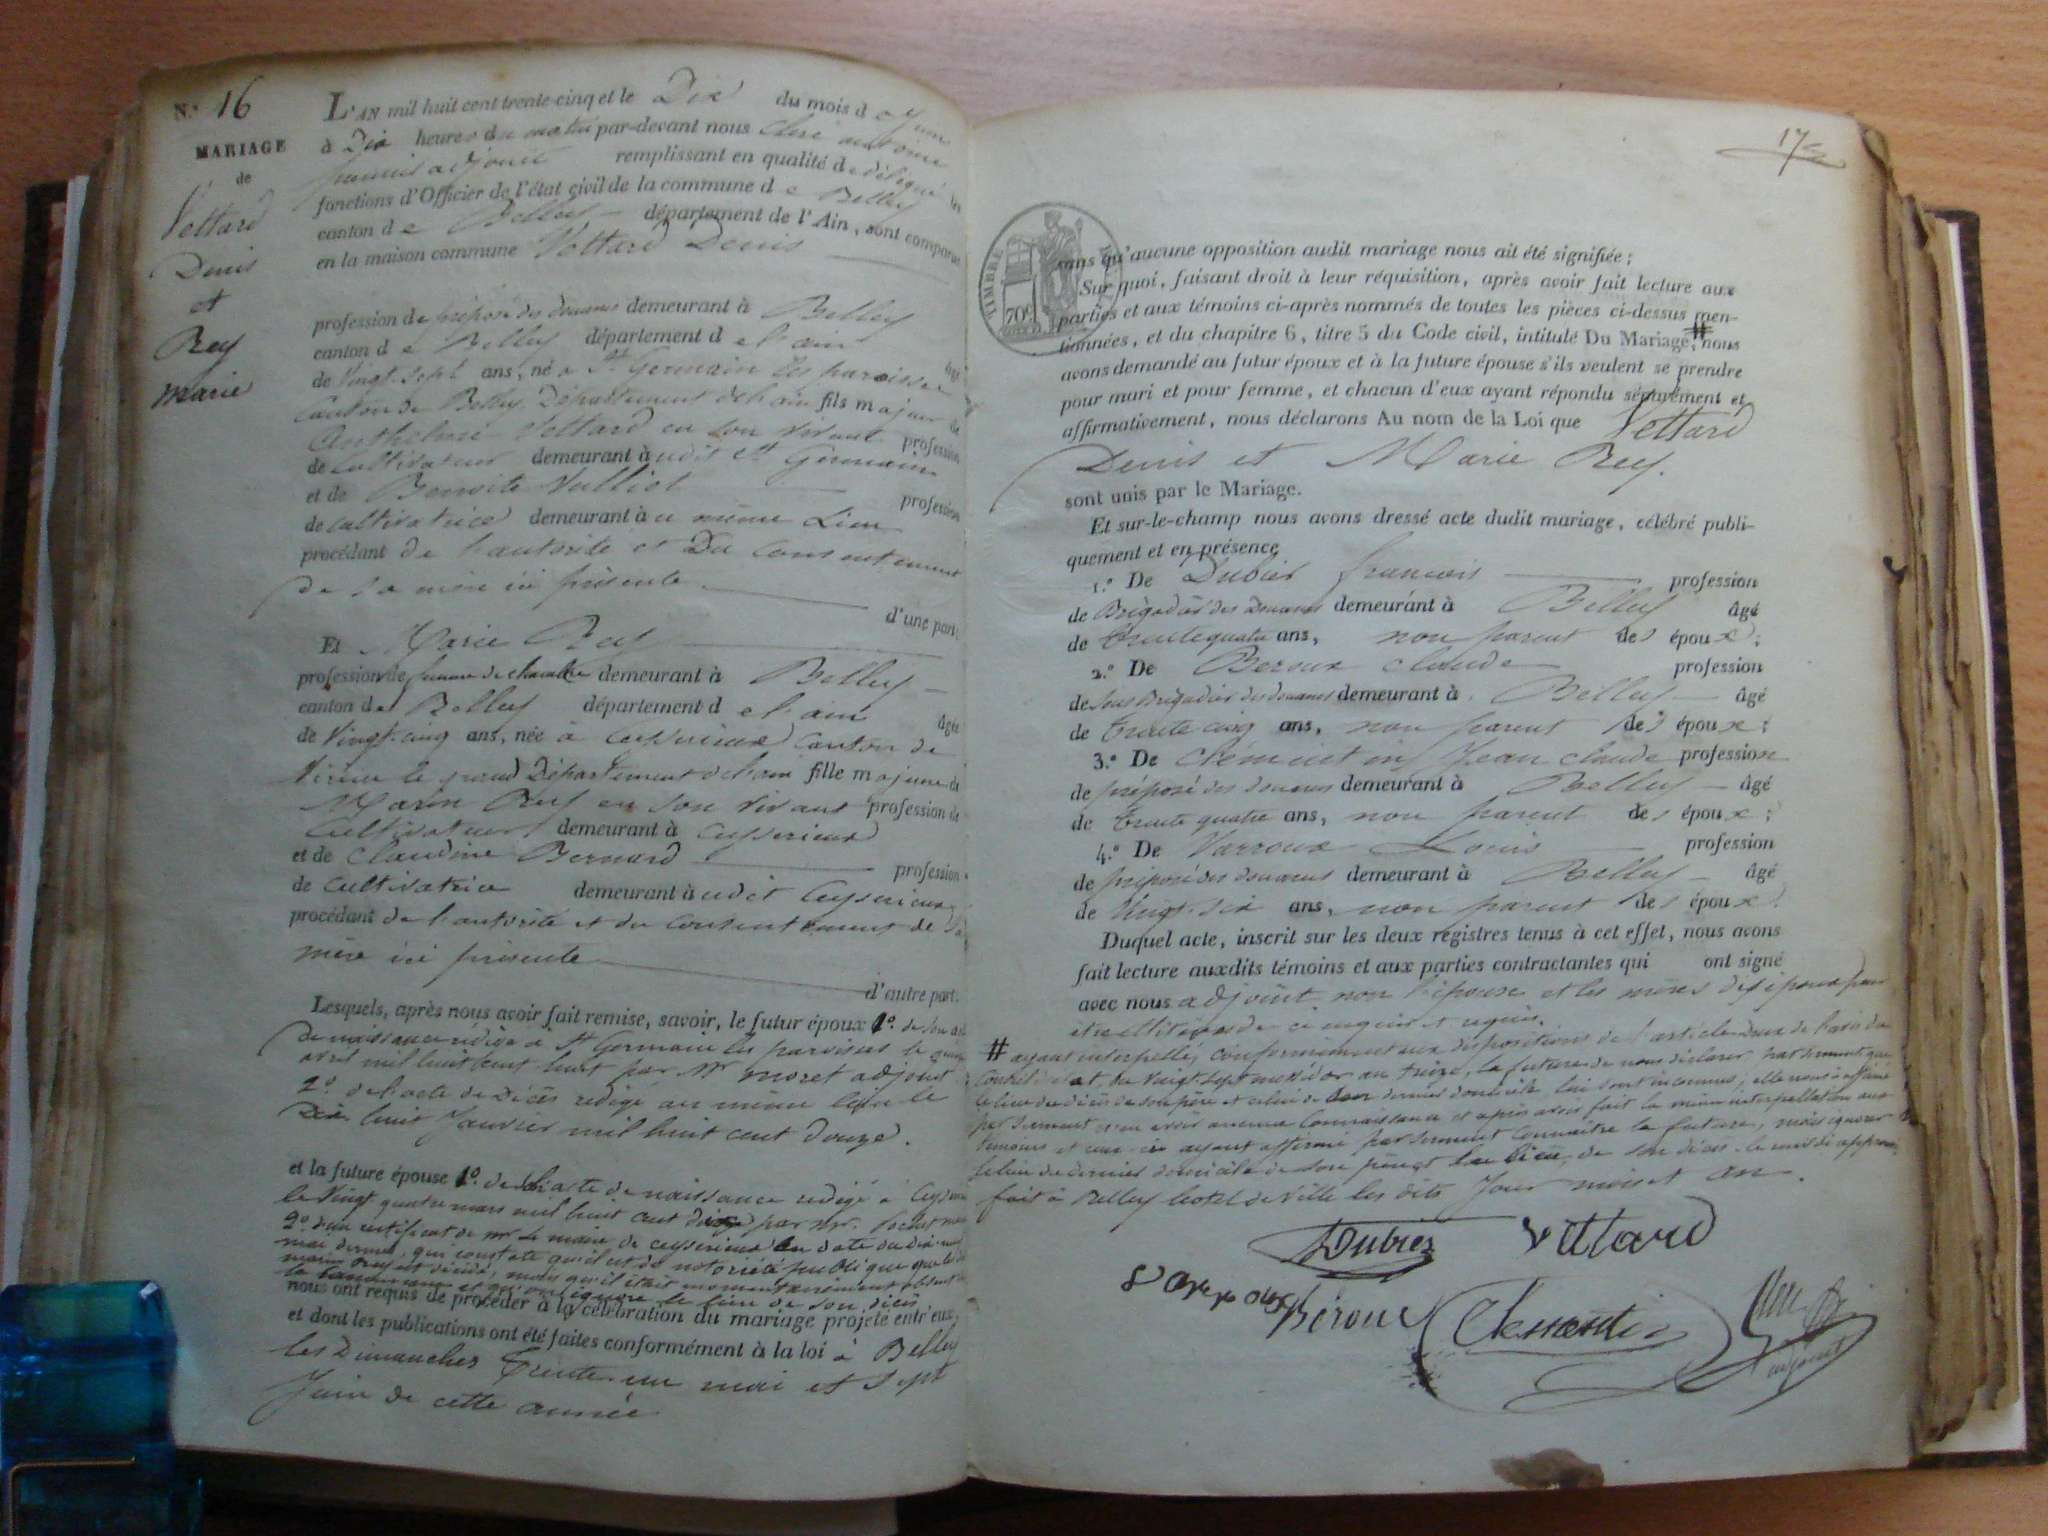 N.º 16
MARIAGE
de
Vettard
Denis
et
Rey
Marie
L'AN mil huit cent trente-cinq et le Dix du mois de Juin
à Dix heures du matin par-devant nous antoine
adjoint remplissant en qualité de délégué les
fonctions d'Officier de l'état civil de la commune de Belley
canton de Belley département de l'Ain, sont comparus
en la maison commune Vettard Denis
profession de préposé des douanes demeurant à Belley
canton de Belley département de l'ain âgé
de vingt-sept ans, né à St Germain les paroisses
Canton de Belley Département de l'ain fils majeur de
Anthelme Vettard en son vivant profession
de Cultivateur demeurant audit St Germain
et de Benoite Vulliot profession
de cultivatrice demeurant au même Lieu
procédant de l'autorité et Du Consentement
de sa mère ici présente
d'une part.
Et Marie Rey
profession de femme de chambre demeurant à Belley
canton de Belley département de l'ain âgée
de Vingt-cinq ans, née à Ceyserieux Canton de
Virieu le grand Département de l'ain fille majeure de
Marin Rey en son vivant profession de
Cultivateur demeurant à Ceyserieux
et de Claudine Bernard profession
de cultivatrice demeurant audit Ceyserieux
procédant de l'autorité et du Consentement de sa
mère ici présente
d'autre part.
Lesquels, après nous avoir fait remise, savoir, le futur époux 1º. de son acte
de naissance rédigé à St Germain les paroisses le quinze
avril mil huit cent huit par Mr moret adjoint
2º. de l'acte de Décès rédigé au même lieu le
Dix huit Janvier mil huit cent douze.
et la future épouse 1º. de l'acte de naissance rédigé à Ceyserieux
le Vingt quatre mars mil huit cent dix par Mr.
2º. d'un certificat de Mr le maire de ceyserieux en date du
mai dernier, qui constate qu'il est de notoriété publique que le dit
marin Rey est décédé, mais qu'il était momentanément absent de
la Commune et qu'on ignore le lieu de son décès
nous ont requis de procéder à la célébration du mariage projeté entr'eux,
et dont les publications ont été faites conformément à la loi à Belley
les Dimanches Trente-un mai et sept
Juin de cette année
17
TIMBRE
70c
sans qu'aucune opposition audit mariage nous ait été signifiée;
Sur quoi, faisant droit à leur réquisition, après avoir fait lecture aux
parties et aux témoins ci-après nommés de toutes les pièces ci-dessus men-
tionnées, et du chapitre 6, titre 5 du Code civil, intitulé Du Mariage, # nous
avons demandé au futur époux et à la future épouse s'ils veulent se prendre
pour mari et pour femme, et chacun d'eux ayant répondu séparément et
affirmativement, nous déclarons Au nom de la Loi que Vettard
Denis et Marie Rey.
sont unis par le Mariage.
Et sur-le-champ nous avons dressé acte dudit mariage, célébré publi-
quement et en présence
1.º De Dubiez françois profession
de Brigadier des Douanes demeurant à Belley âgé
de trente quatre ans, non parent des époux;
2.º De Beroux claude profession
de Sous Brigadier des douanes demeurant à Belley âgé
de trente cinq ans, non parent des époux;
3.º De Clémentin Jean claude profession
de préposé des douanes demeurant à Belley âgé
de trente quatre ans, non parent des époux;
4.º De Varroux Louis profession
de préposé des douanes demeurant à Belley âgé
de Vingt-six ans, non parent des époux.
Duquel acte, inscrit sur les deux registres tenus à cet effet, nous avons
fait lecture auxdits témoins et aux parties contractantes qui ont signé
avec nous adjoint non l'épouse et les mères des époux pour
être illitérées de ce enquis et requis.
# ayant interpellé, conformément aux dispositions de l'article deux de l'avis du
Conseil d'état, du Vingt-sept messidor an treize, la future de nous déclarer par serment que
le lieu du décès de son père et celui de son dernier domicile lui sont inconnus; elle nous a affirmé
par serment n'en avoir aucune Connaissance et après avoir fait la même interpellation aux
témoins et ceux-ci ayant affirmé par serment connaître la future, mais ignorer
celui du dernier domicile de son père et le lieu de son décès.
fait à Belley hôtel de Ville les dits Jour mois et an.
Dubiez Vettard
Béroux Clementin
adjoint